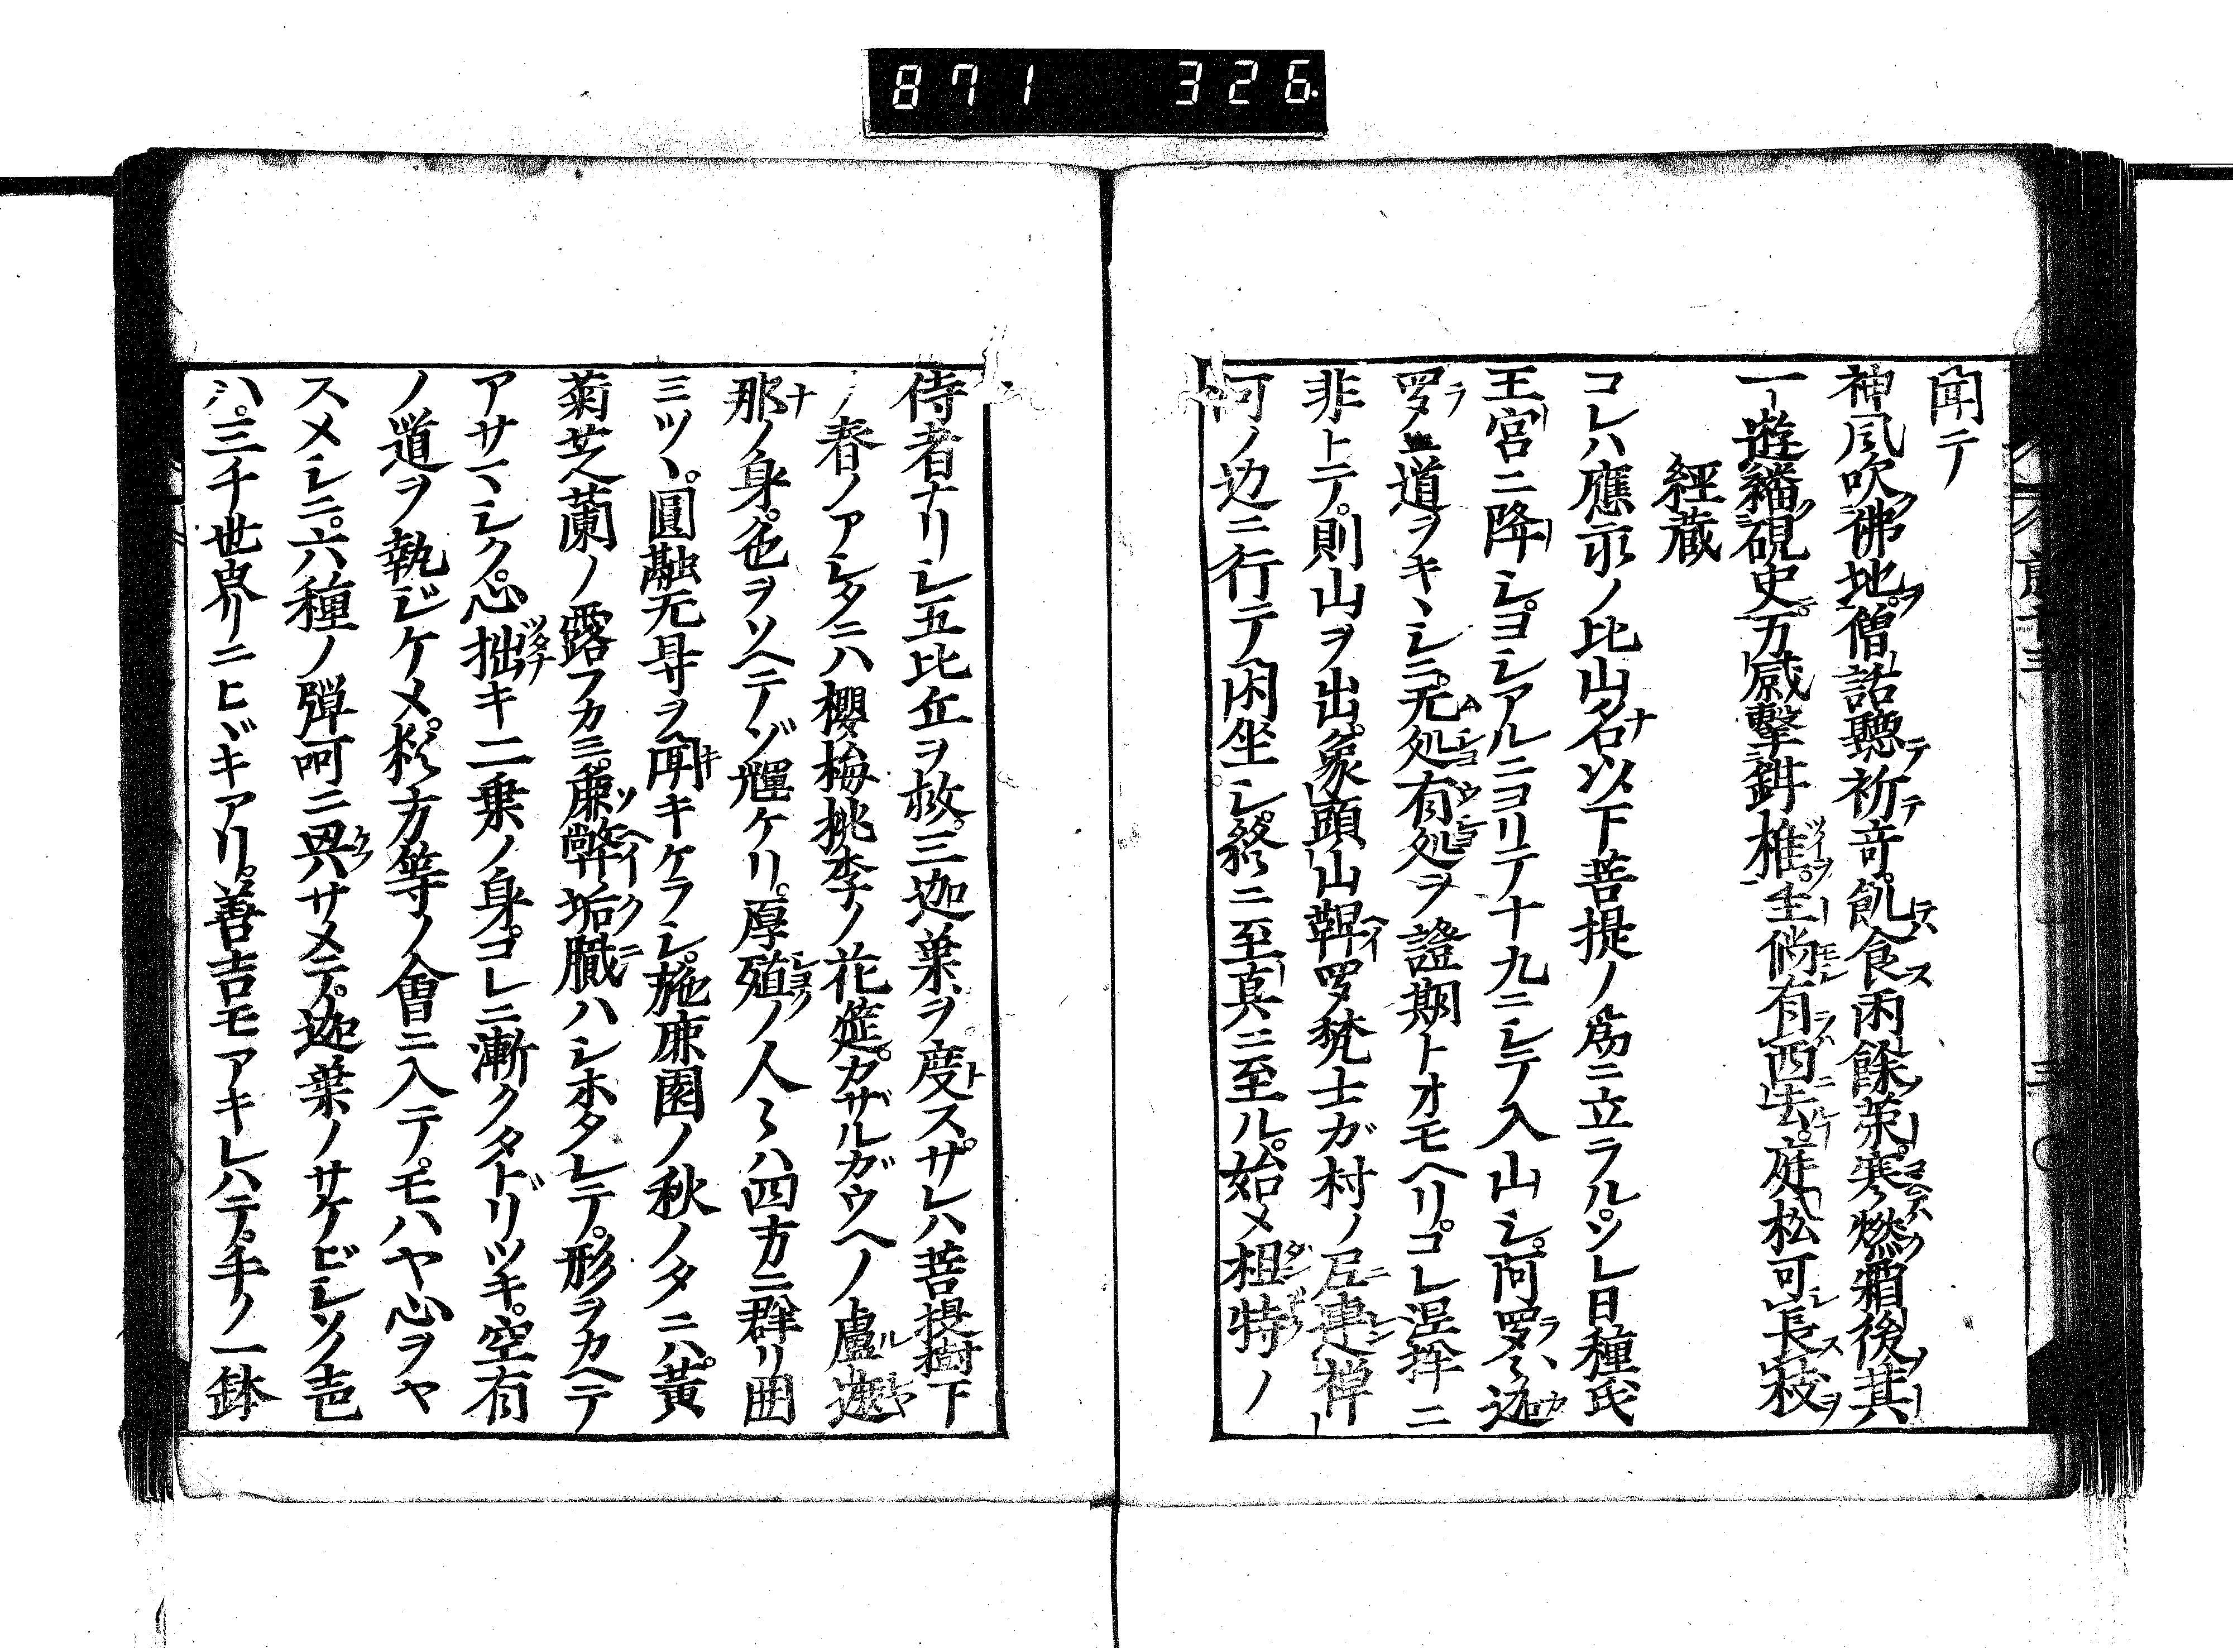 871 326
聞テ
神風吹佛地。僧話聽祈竒。飢食雨餘菜。寒燃霜後其
一遊繙硯史。万感擊鉡椎。主倘有西去。庭松可長枝
經藏
コレハ應永ノ比山名以下菩提ノ爲ニ立ラル。ソレ日種氏
王宮ニ降シ。ヨシアルニヨリテ十九ニシテ入山シ。阿羅々迦
罗メ道ヲキヽシニ。无処有処ヲ證期トオモヘリ。コレ涅槃ニ
非トテ。則山ヲ出。象頭山鞞罗梵士ガ村ノ尼連禅
河ノ边ニ行テ。閑坐シ。終ニ至真ニ至ル。始メ柤特ノ
侍者ナリシ五比丘ヲ救。三迦葉ヲ度ス。サレハ菩提樹下
ノ春ノアシタニハ櫻梅桃李ノ花筵。カザルガウヘノ盧遮
那ノ身。色ヲソヘテゾ耀ケリ。厚殖ノ人々ハ四方ニ群リ囲
ミツヽ。圓融无碍ヲ聞キケラシ。施鹿園ノ秋ノタニハ。黄
菊芝蘭ノ露フカミ。麁弊垢膩ハシホタレテ。形ヲカヘテ
アサマシク。心拙キ二乗ノ身。コレニ漸クタドリツキ。空有
ノ道ヲ執ジケメ。拟方等ノ會ニ入テ。モハヤ心ヲヤ
スメシニ。六種ノ彈呵ニ興サメテ。迦葉ノサケビシソノ声
ハ。三千世界リニヒヾキアリ。善吉モアキレハテ。手ノ一鉢